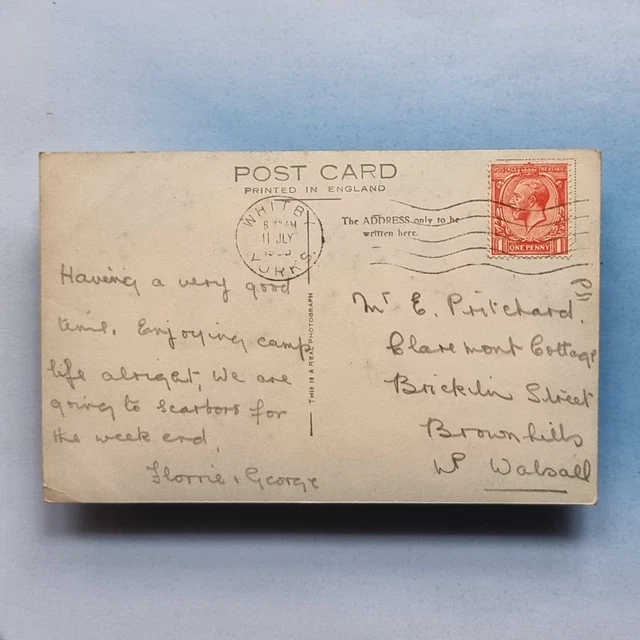 POST CARD
PRINTED IN ENGLAND
WHITBY
11 JLY
YORKS.
The ADDRESS only to be
written here.
POSTAGE REVENUE
ONE PENNY
THIS IS A REAL PHOTOGRAPH
Having a very good
time. Enjoying camp
life alright, We are
going to Scarboro for
the week end,
Florrie & George
Mr E. Pritchard,
Claremont Cottage
Bricklin Street
Brownhills
Nr Walsall